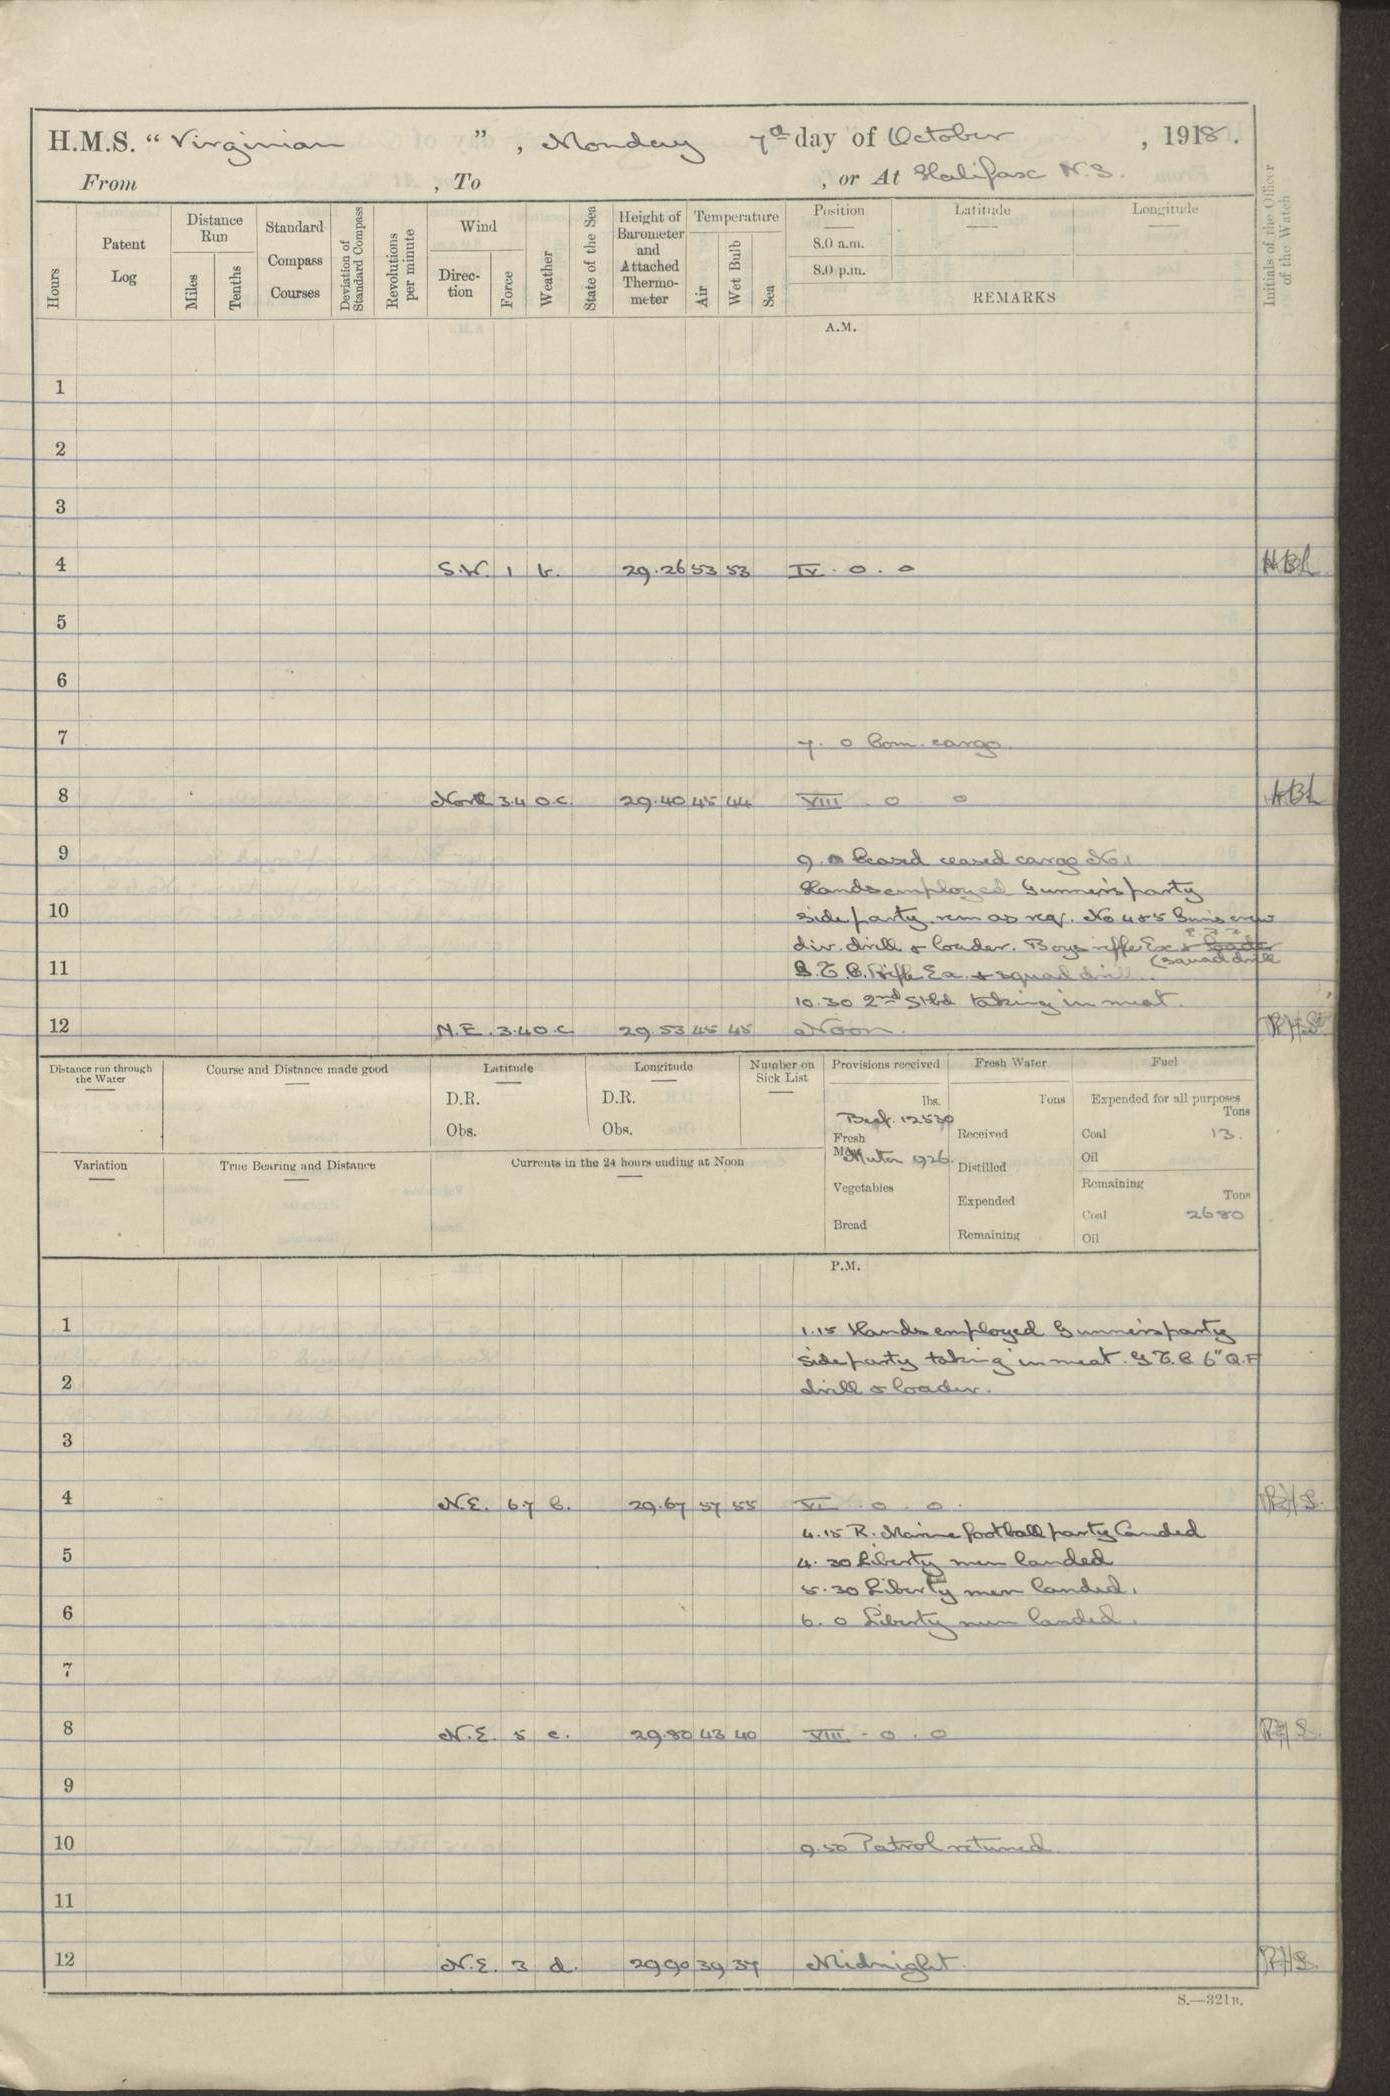 H.M.S. “Virginian”, Monday 7th day of October, 1918.
From , To , or At Halifax N.S.
Hours
Patent Log
Distance Run
Miles
Tenths
Standard Compass Courses
Deviation of Standard Compass
Revolutions per minute
Wind
Direc-tion
Force
Weather
State of the Sea
Height of Barometer and Attached Thermo-meter
Temperature
Air
Wet Bulb
Sea
Position
8.0 a.m.
8.0 p.m.
Latitude
Longitude
REMARKS
Initials of the Officer of the Watch
A.M.
1
2
3
4 S.W. 1 29.26 53 53 IV. 0. 0
5
6
7 7. 0 Com. cargo
8 North 3.4 o.c. 29.40 45 44 VIII. 0 0
9 9. 0 ceased cargo No 1
Hands employed Gunner's party
10 side party. rem as req. No 4 & 5 Guns crew
div. drill & loader. Boys rifle Ex
(squad drill
11 Rifle Ex. & squad drill.
10.30 2nd Stbd taking in meat.
12 N.E. 3.4 o.c. 29.53 45 45 Noon.
Distance run through the Water
Course and Distance made good
Latitude
D.R.
Obs.
Longitude
D.R.
Obs.
Number on Sick List
Provisions received
lbs.
Beef. 12530
Fresh Meat
Muton 926.
Vegetables
Bread
Fresh Water
Tons
Received
Distilled
Expended
Remaining
Fuel
Expended for all purposes
Tons
Coal 13.
Oil
Remaining
Tons
Coal 2680
Oil
Variation
True Bearing and Distance
Currents in the 24 hours ending at Noon
P.M.
1 1.15 Hands employed Gunner's party
side party taking in meat. G.T.C 6" Q.F
2 drill & loader.
3
4 N.E. 6.7 29.67 57 55 0. 0.
4.15 R. Marine football party landed
5 4.30 Liberty men landed
5.30 Liberty men landed.
6 6. 0 Liberty men landed.
7
8 N.E. 5 c. 29.80 43 40 VIII. 0. 0
9
10 9.50 Patrol returned
11
12 N.E. 3 d. 29.90 39 37 Midnight.
S.—321B.